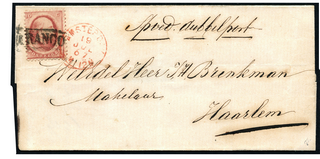 FRANCO
Spoed dubbelport
WelEdel Heer TH Brinkman
Makelaar
Haarlem